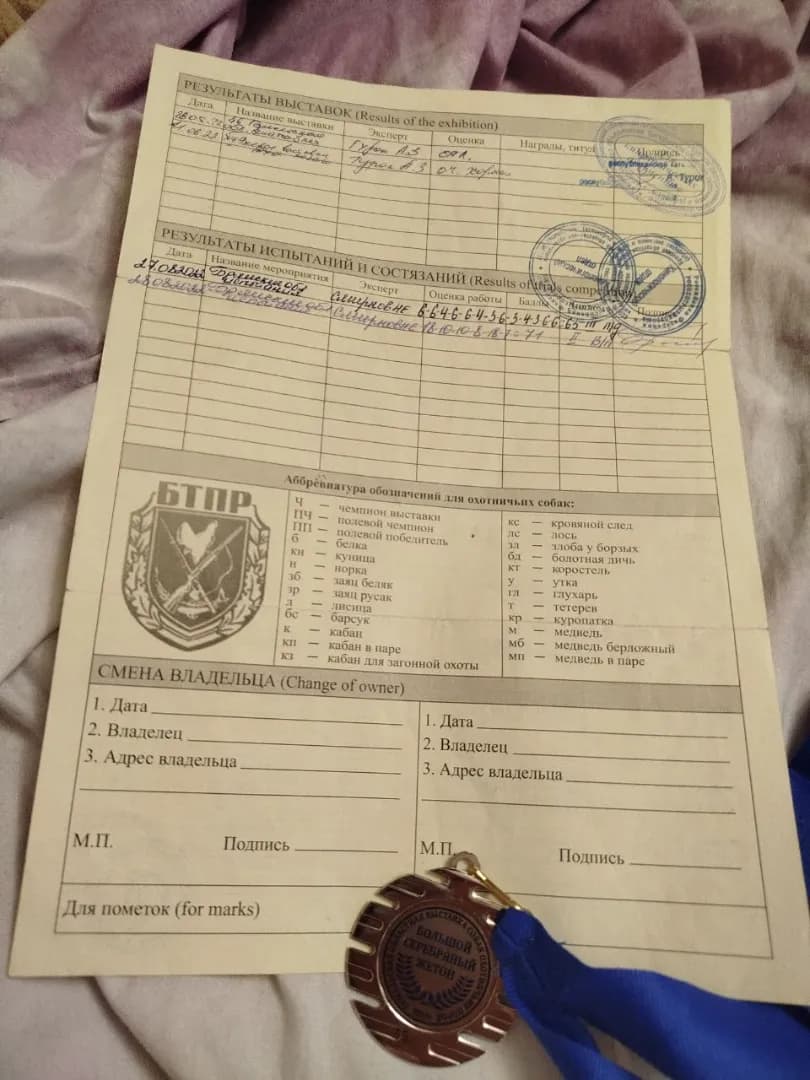 РЕЗУЛЬТАТЫ ВЫСТАВОК (Results of the exhibition)
Дата Название выставки Эксперт Оценка Награды, титул Подпись
Турок А.З
Турок А.З оч. хорошо
РЕЗУЛЬТАТЫ ИСПЫТАНИЙ И СОСТЯЗАНИЙ (Results of trials
Дата Название мероприятия Эксперт Оценка работы Баллы
27.08.2022 6-6-4-6-6-4-3-6-3-4-3 66-65 III п/д
28.08.2022 18-10-10-8-18-7=71 II
Аббревиатура обозначений для охотничьих собак:
БТПР
Ч — чемпион выставки
ПЧ — полевой чемпион
ПП — полевой победитель
б — белка
кн — куница
н — норка
зб — заяц беляк
зр — заяц русак
л — лисица
бс — барсук
к — кабан
кп — кабан в паре
кз — кабан для загонной охоты
кс — кровяной след
лс — лось
зл — злоба у борзых
бд — болотная дичь
кт — коростель
у — утка
гл — глухарь
т — тетерев
кр — куропатка
м — медведь
мб — медведь берложный
мп — медведь в паре
СМЕНА ВЛАДЕЛЬЦА (Change of owner)
1. Дата
2. Владелец
3. Адрес владельца
М.П. Подпись
1. Дата
2. Владелец
3. Адрес владельца
М.П. Подпись
Для пометок (for marks)
БОЛЬШОЙ
СЕРЕБРЯНЫЙ
ЖЕТОН